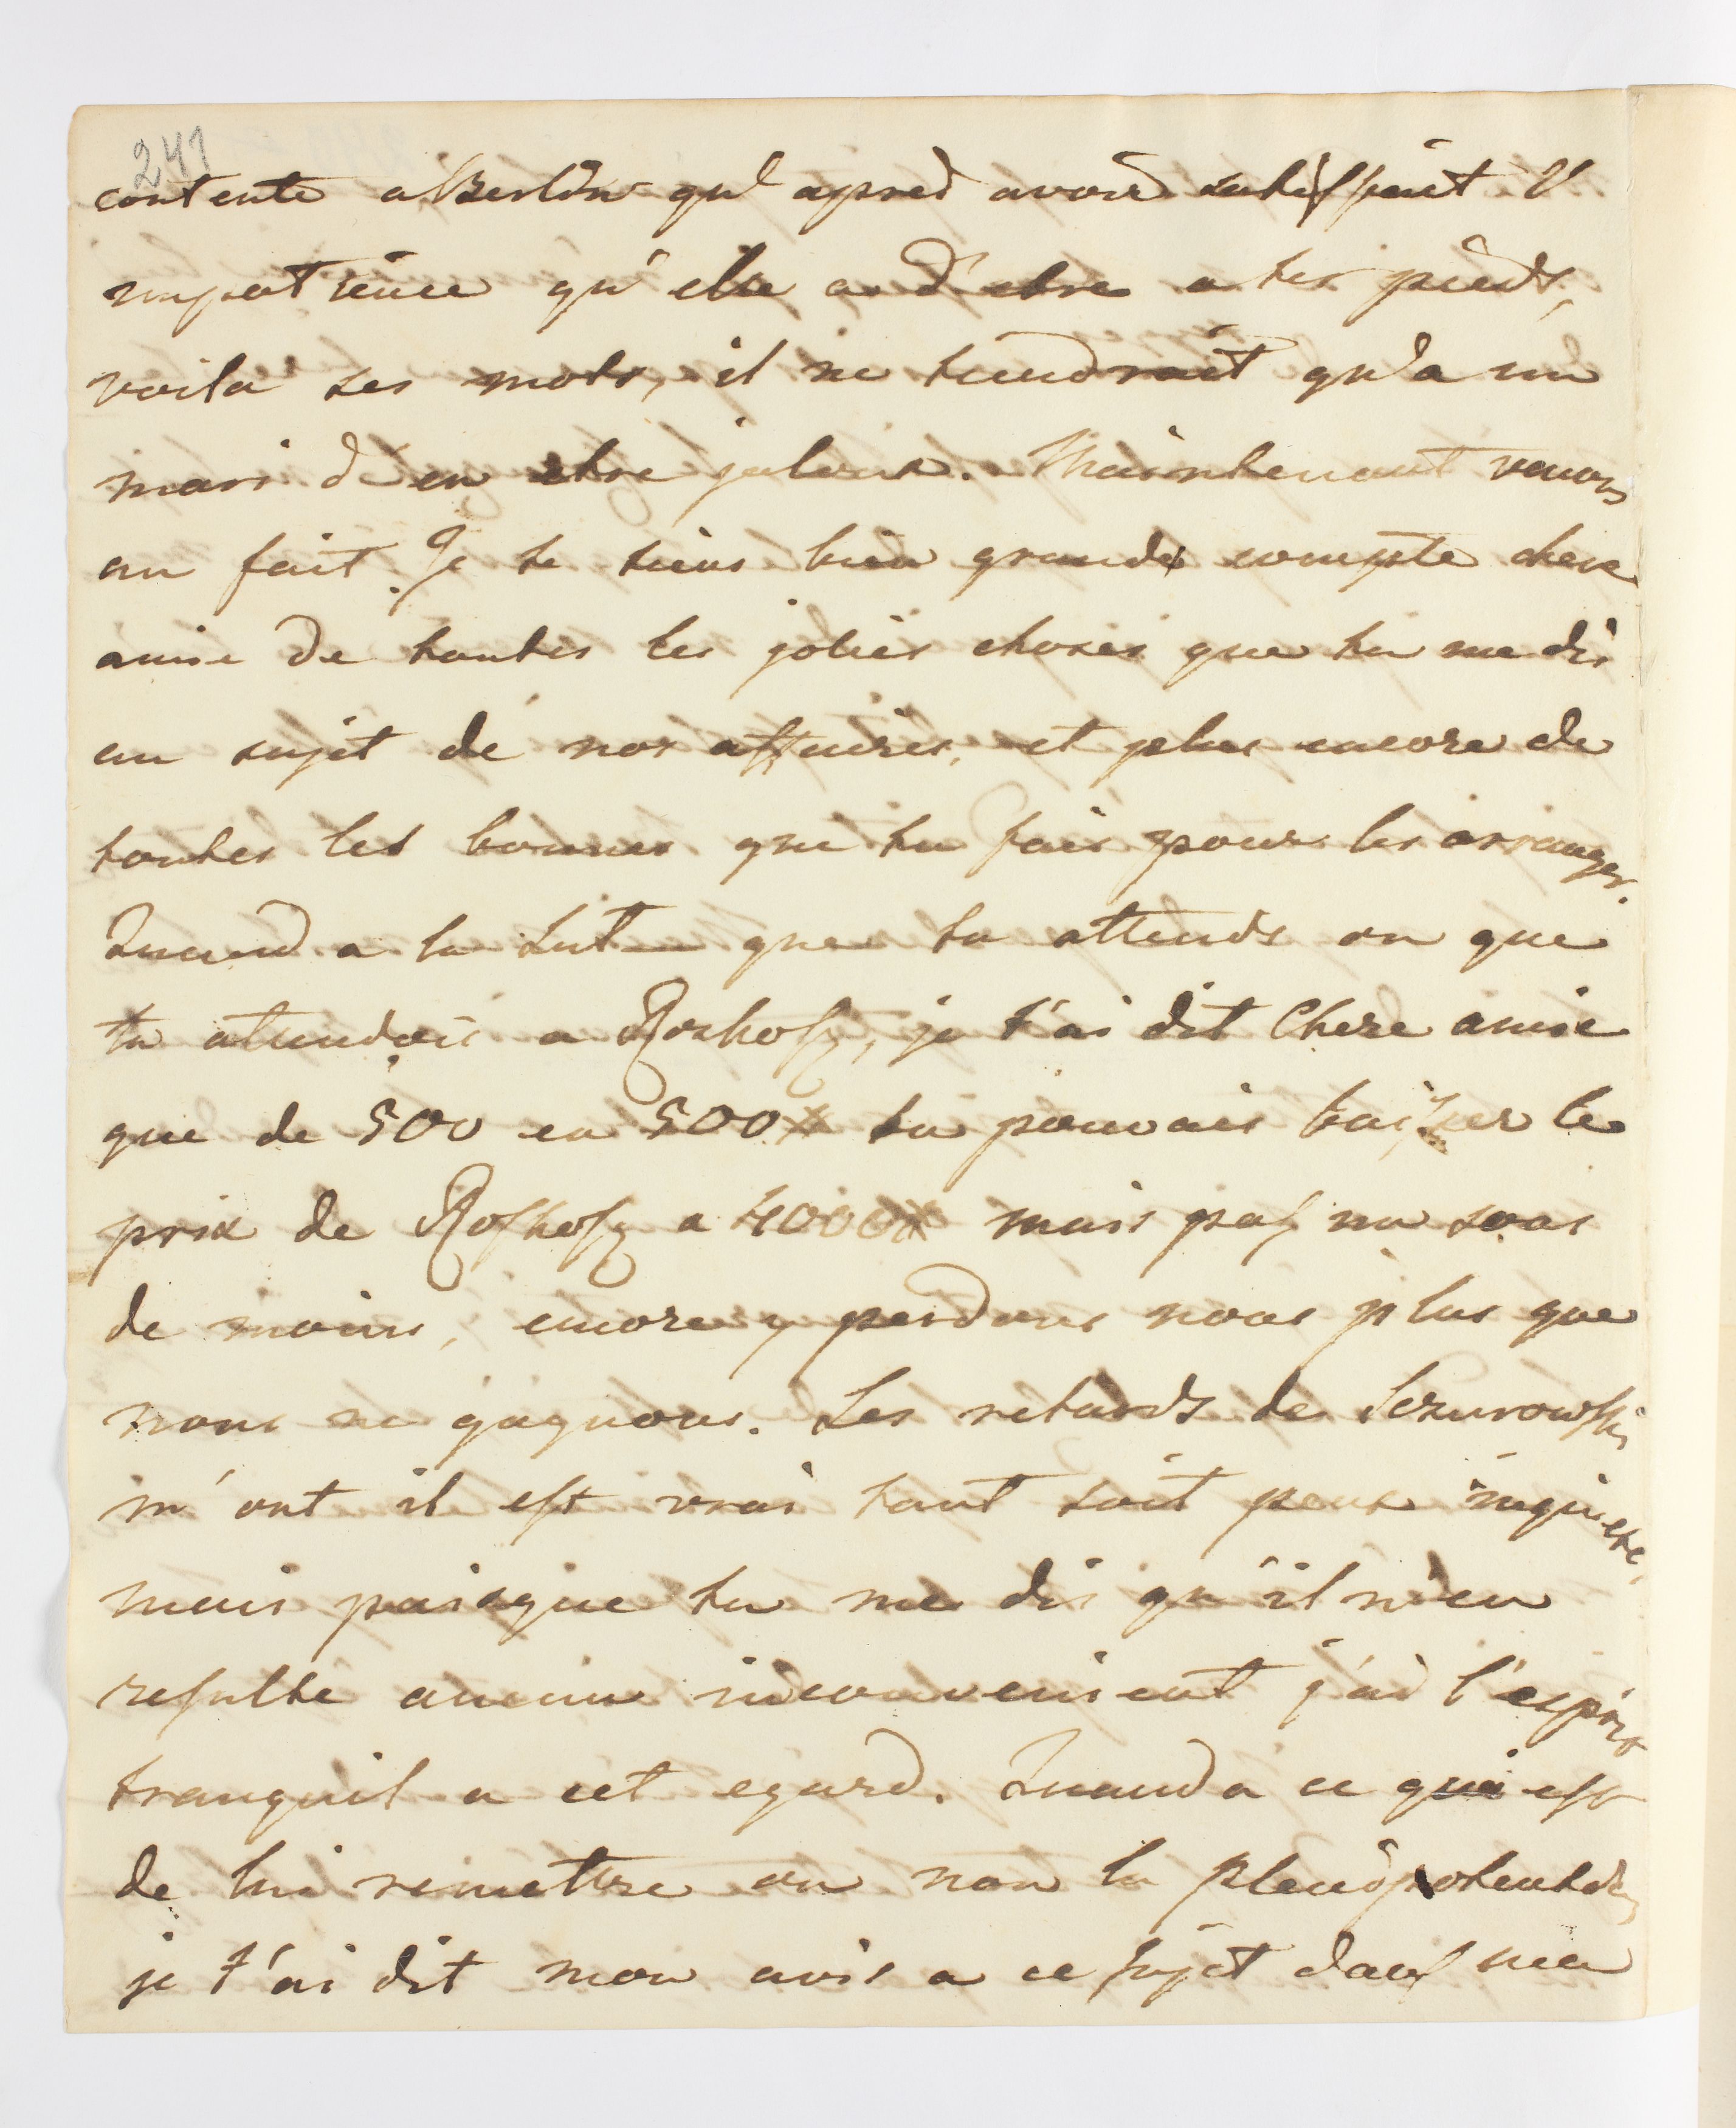 241
contente a Berlin qu' apres avoir satisfait l'
impatience qu'elle a d'etre a tes pieds,
voila ses mots, il ne tiendrait qu'a un
mari d'en etre jaloux. Maintenant venons
au fait. Je te tiens bien grande compte chere
amie de toutes les jolies choses que tu me dis
au sujet de nos affaires, et plus encore de
toutes les bonnes que tu fais pour les arranger.
Quand a la que tu attends ou que
tu attendois a je t'ai dit Chere amie
que de 500 en 500# tu pouvais baisser le
prix de a 4000# mais pas un sous
de moins, encore y perdons nous plus que
nous ne gagnons. Les retards de Szurowski
m'ont il est vrai tant soit peux inquiete,
mais puisque tu me dis qu'il n'en
resulte aucun inconvenient j'ai l'esprit
tranquil a cet egard. Quand a ce qui est
de lui remettre ou non la
je t'ai dit mon avis a ce sujet dans ma